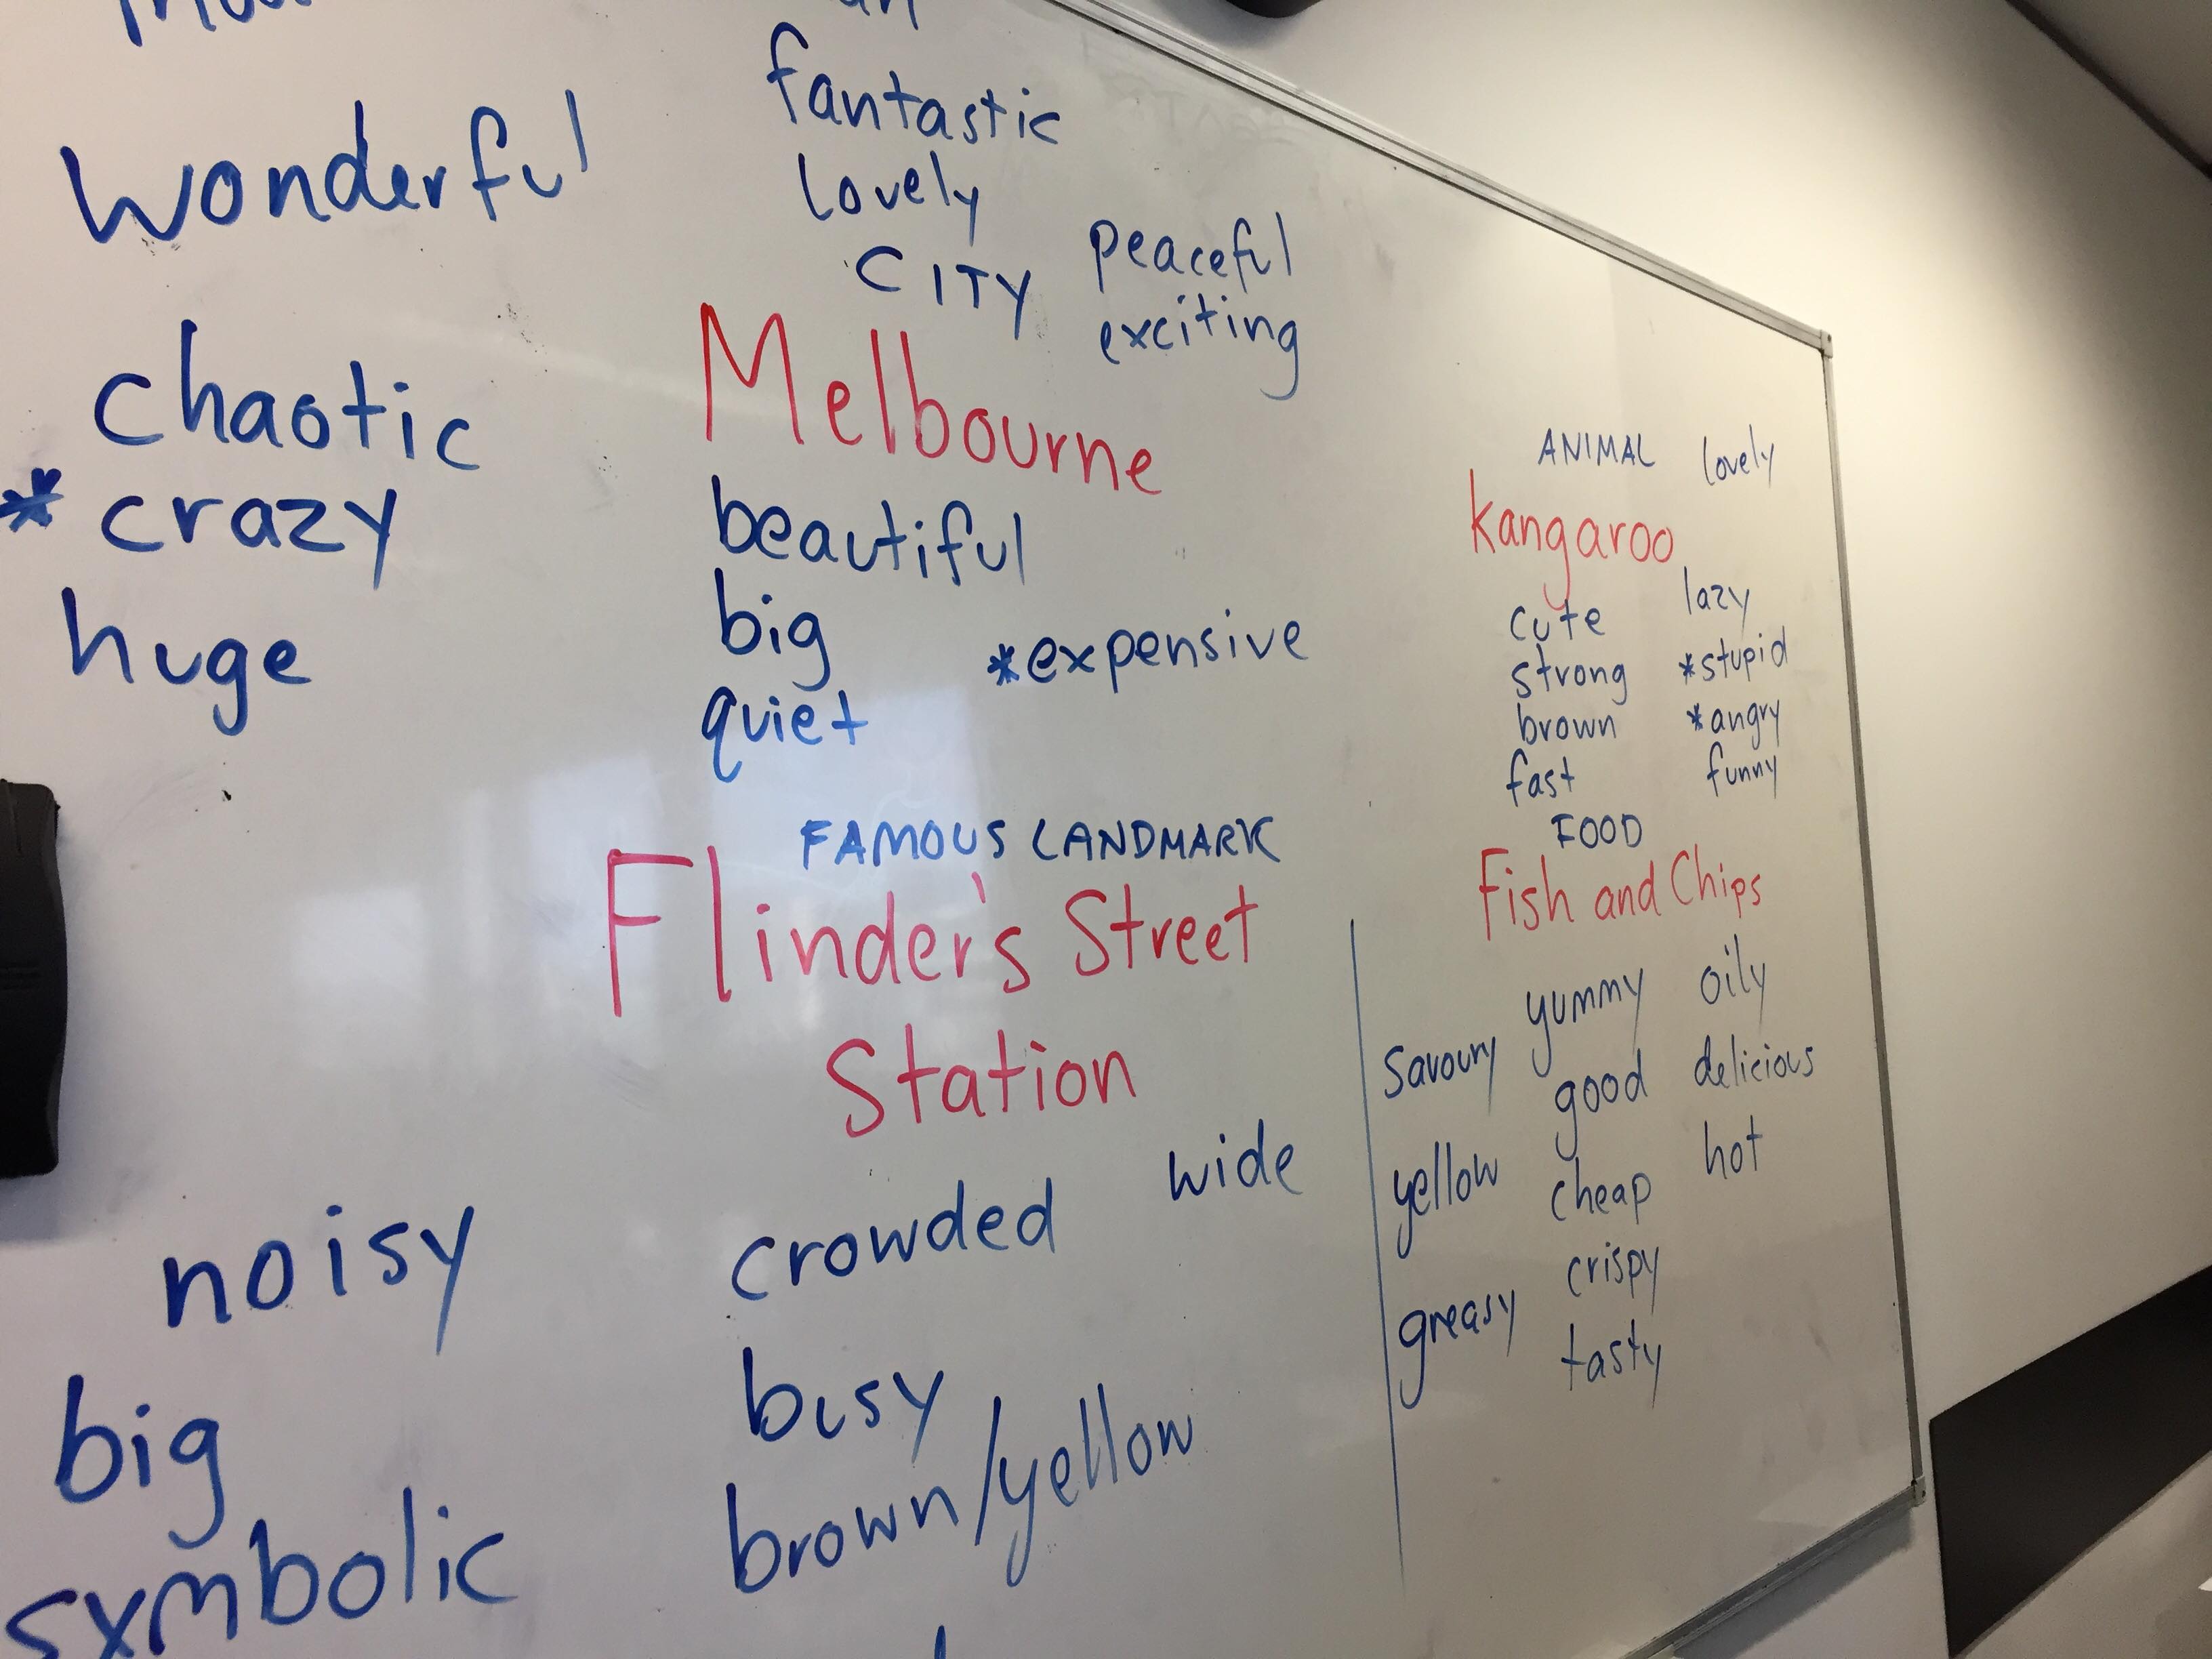 fantastic
wonderful
lovely
CITY
peaceful
exciting
Melbourne
chaotic
* crazy
huge
beautiful
big
quiet
*expensive
ANIMAL lovely
kangaroo
cute lazy
strong *stupid
brown *angry
fast funny
FAMOUS LANDMARK
Flinder's Street
Station
noisy
crowded
wide
big
busy
symbolic
brown/yellow
FOOD
Fish and Chips
yummy oily
savoury good delicious
yellow cheap hot
crispy
greasy tasty